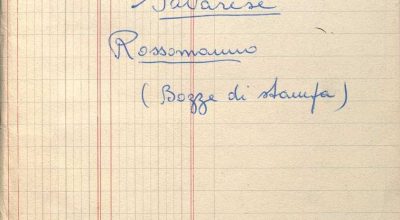 Savarese
Rossomanno
(Bozze di stampa)